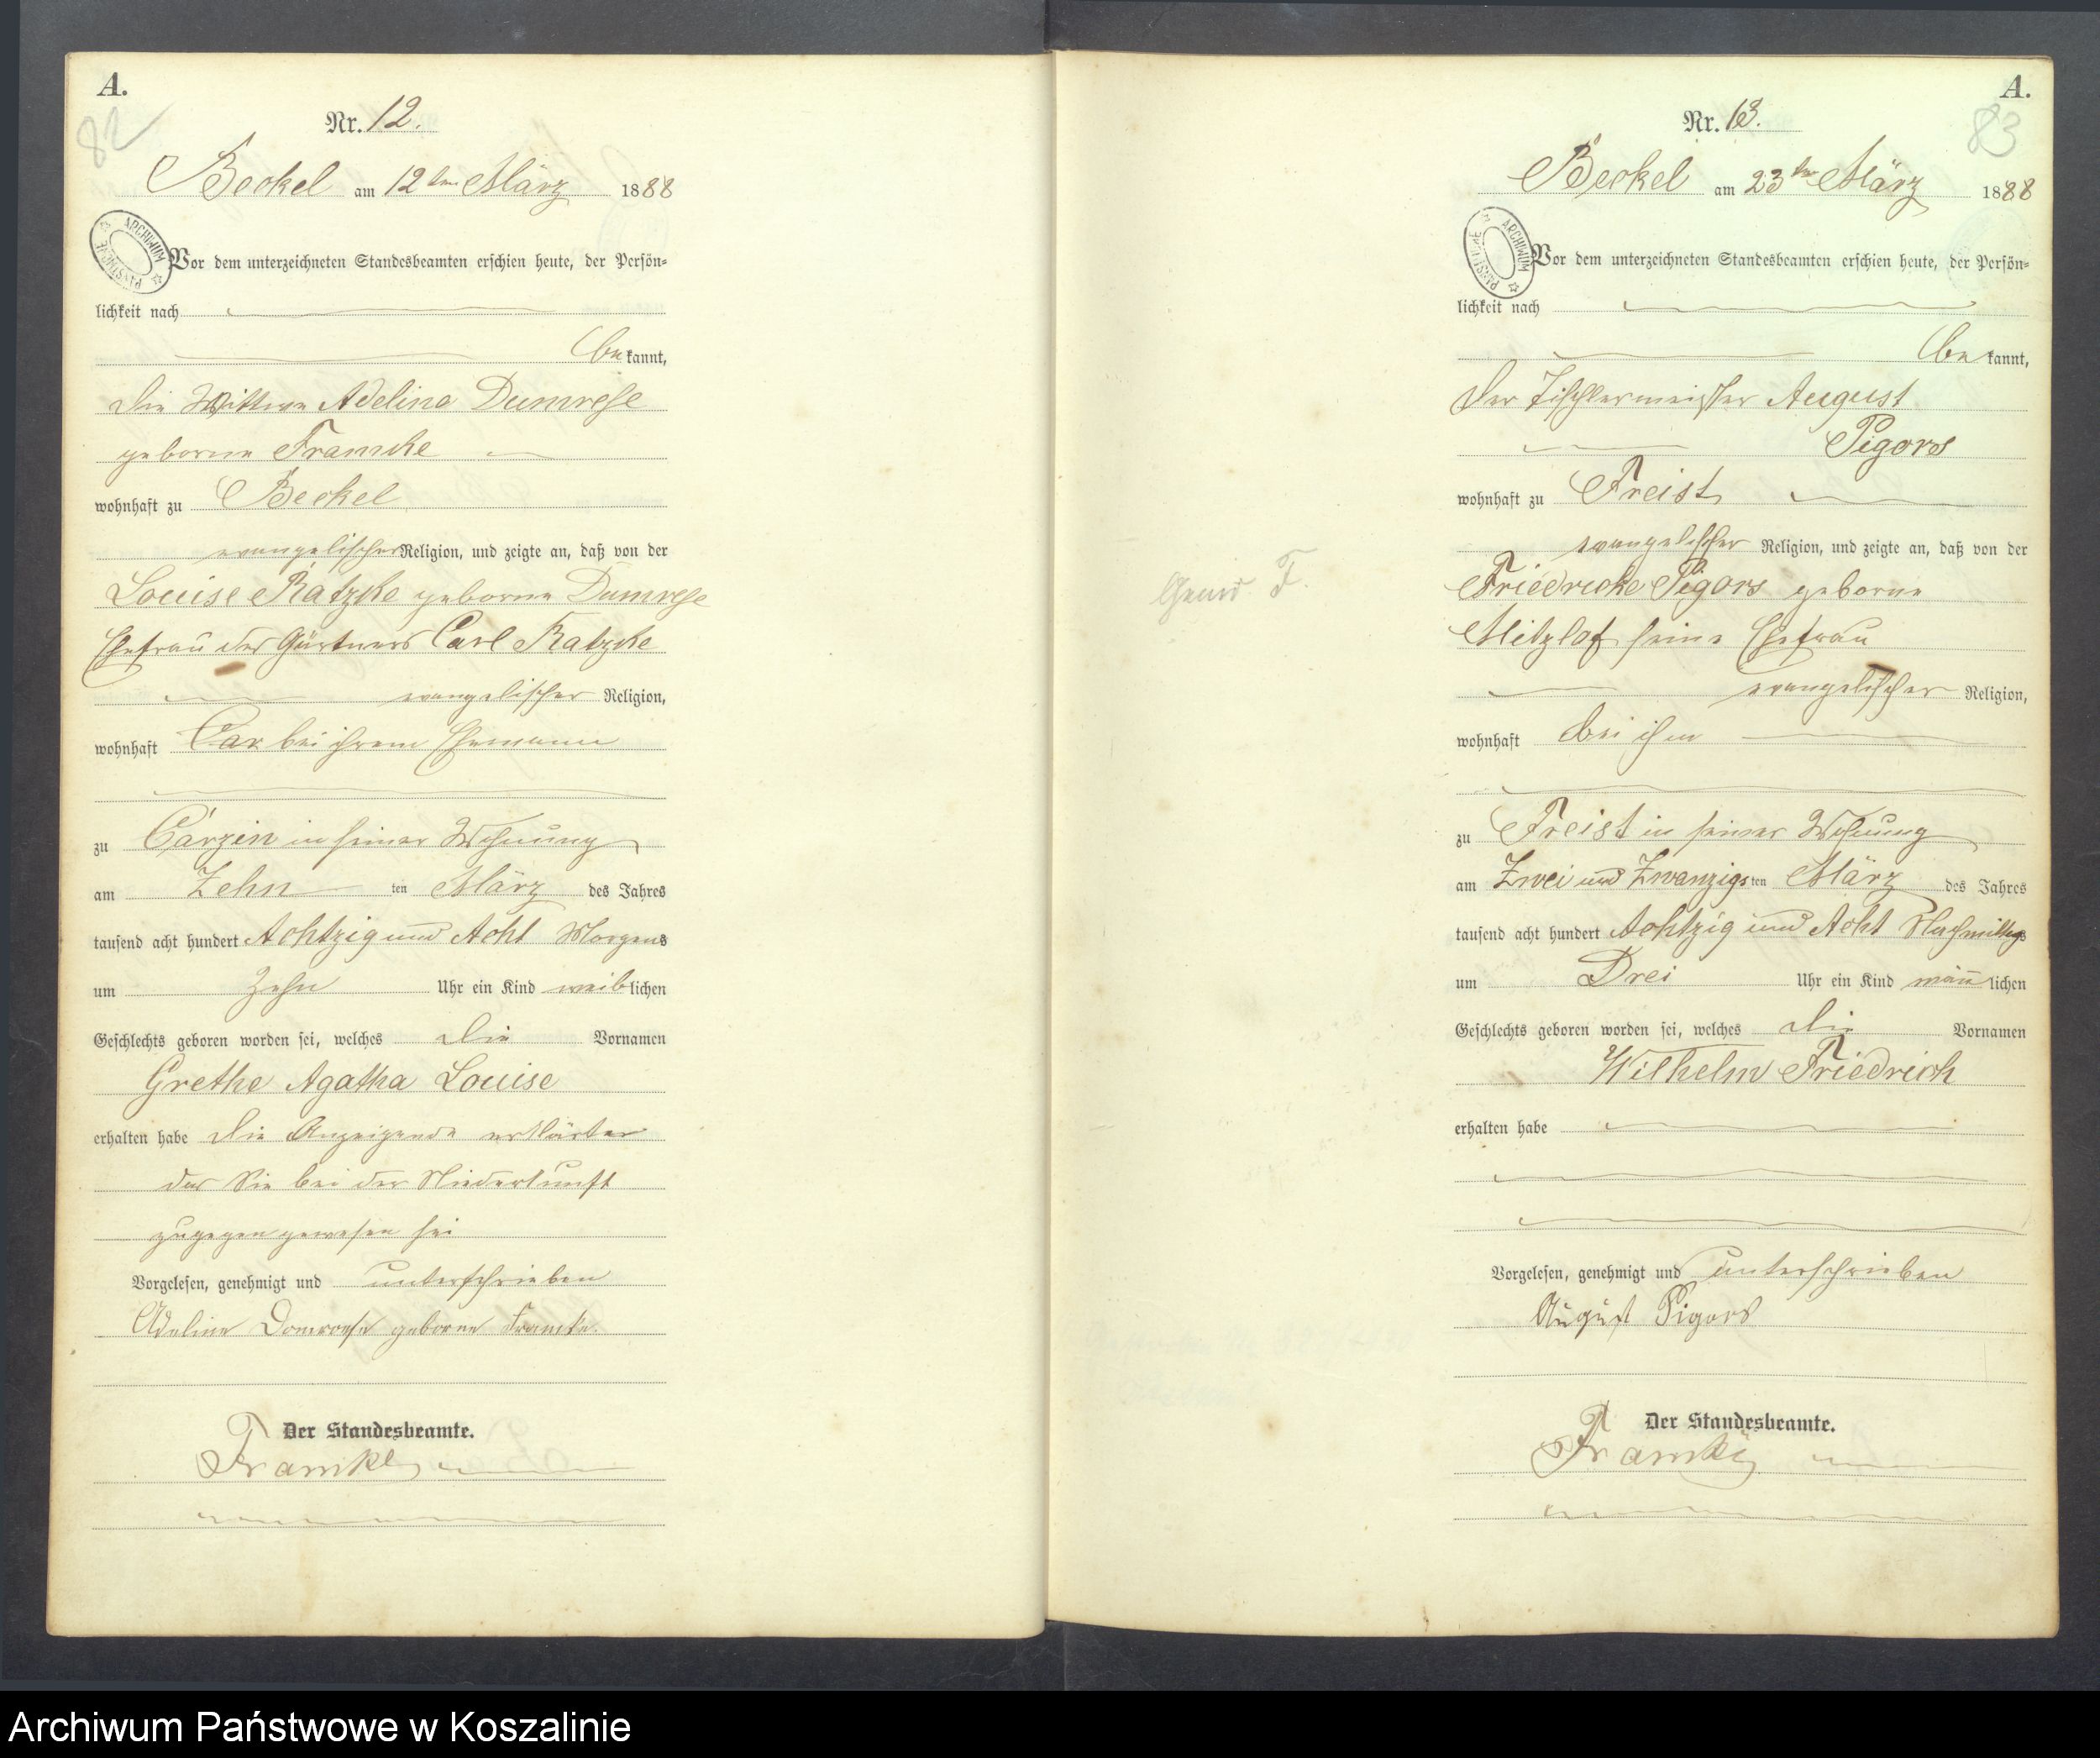 A.
82
Nr. 12.
Beckel am 12ten März 1888
ARCHIWUM PAŃSTWOWE
Vor dem unterzeichneten Standesbeamten erschien heute, der Persön-
lichkeit nach
bekannt,
die Wittwe Adeline Dumrese
geborne Framcke
wohnhaft zu Beckel
evangelischer Religion, und zeigte an, daß von der
Louise Ratzke geborne Dumrese
Ehefrau des Gärtners Carl Ratzke
evangelischer Religion,
wohnhaft bei ihrem Ehemanne
zu Carzin in seiner Wohnung
am Zehn ten März des Jahres
tausend acht hundert Achtzig und Acht Morgens
um Zehn Uhr ein Kind weiblichen
Geschlechts geboren worden sei, welches die Vornamen
Grethe Agatha Louise
erhalten habe die Anzeigende erklärte
das Sie bei der Niederkunft
zugegen gewesen sei
Vorgelesen, genehmigt und unterschrieben
Adeline Domroese geborne Framke.
Der Standesbeamte.
Framke
A.
83
Nr. 13.
Beckel am 23ten März 1888
ARCHIWUM PAŃSTWOWE
Vor dem unterzeichneten Standesbeamten erschien heute, der Persön-
lichkeit nach
bekannt,
der Tischlermeister August
Pigors
wohnhaft zu Freist
evangelischer Religion, und zeigte an, daß von der
Friedricke Pigors geborne
Mitzlaf seine Ehefrau
evangelischer Religion,
wohnhaft bei ihm
zu Freist in seiner Wohnung
am Zwei und Zwanzigsten März des Jahres
tausend acht hundert Achtzig und Acht Nachmittags
um Drei Uhr ein Kind männlichen
Geschlechts geboren worden sei, welches die Vornamen
Wilhelm Friedrich
erhalten habe
Vorgelesen, genehmigt und unterschrieben
August Pigors
Der Standesbeamte.
Framke
Archiwum Państwowe w Koszalinie